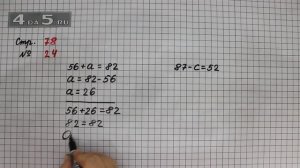 4DA5.RU
Стр. 78
№ 24
56+а=82
а=82-56
а=26
56+26=82
82=82
87-с=52